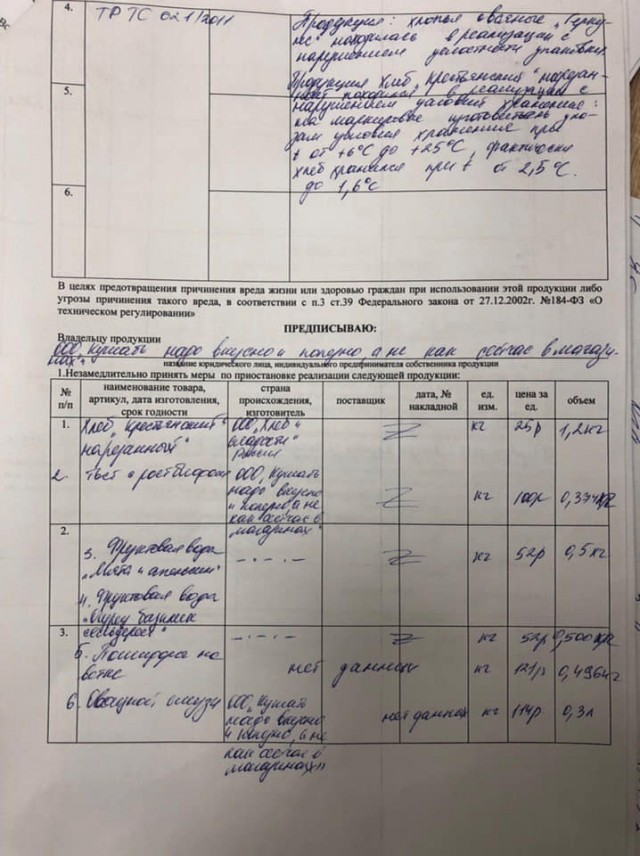 4.
ТР ТС 021/2011
Продукция: хлопья овсяные „Герку-
лес" находилась в реализации с
нарушением целостности упаковки
5.
Продукция Хлеб „Крестьянский" нарезан-
находился в реализации с
нарушением условий хранения:
на маркировке изготовитель ука-
зал условия хранения при
t от +6°С до +25°С, фактически
хлеб хранился при t от 2,5°С.
до 1,6°С
6.
В целях предотвращения причинения вреда жизни или здоровью граждан при использовании этой продукции либо
угрозы причинения такого вреда, в соответствии с п.3 ст.39 Федерального закона от 27.12.2002г. №184-ФЗ «О
техническом регулировании»
ПРЕДПИСЫВАЮ:
Владельцу продукции
ООО „Кушать надо вкусно и полезно, а не как сейчас в магази-
нах"
название юридического лица, индивидуального предпринимателя собственника продукции
1.Незамедлительно принять меры по приостановке реализации следующей продукции:
№ п/п
наименование товара, артикул, дата изготовления, срок годности
страна происхождения, изготовитель
поставщик
дата, № накладной
ед. изм.
цена за ед.
объем
1.
Хлеб „Крестьянский"
нарезанный"
ООО „Хлеб и
сладости"
Россия
кг
25р
1,2кг
2. тост с ростбифом
ООО „Кушать
надо вкусно
и полезно, а не
как сейчас в
магазинах"
кг
100р
2.
3. Фруктовая вода
„Мята и апельсин"
кг
52р
0,5кг
4. Фруктовая вода
базилик
сельдерей"
3.
кг
52р
5. Помидоры на
ветке
нет данных
кг
121р
6. Овощной смузи
ООО „Кушать
надо вкусно
и полезно, а не
как сейчас в
магазинах"
нет данных
кг
114р
0,3л